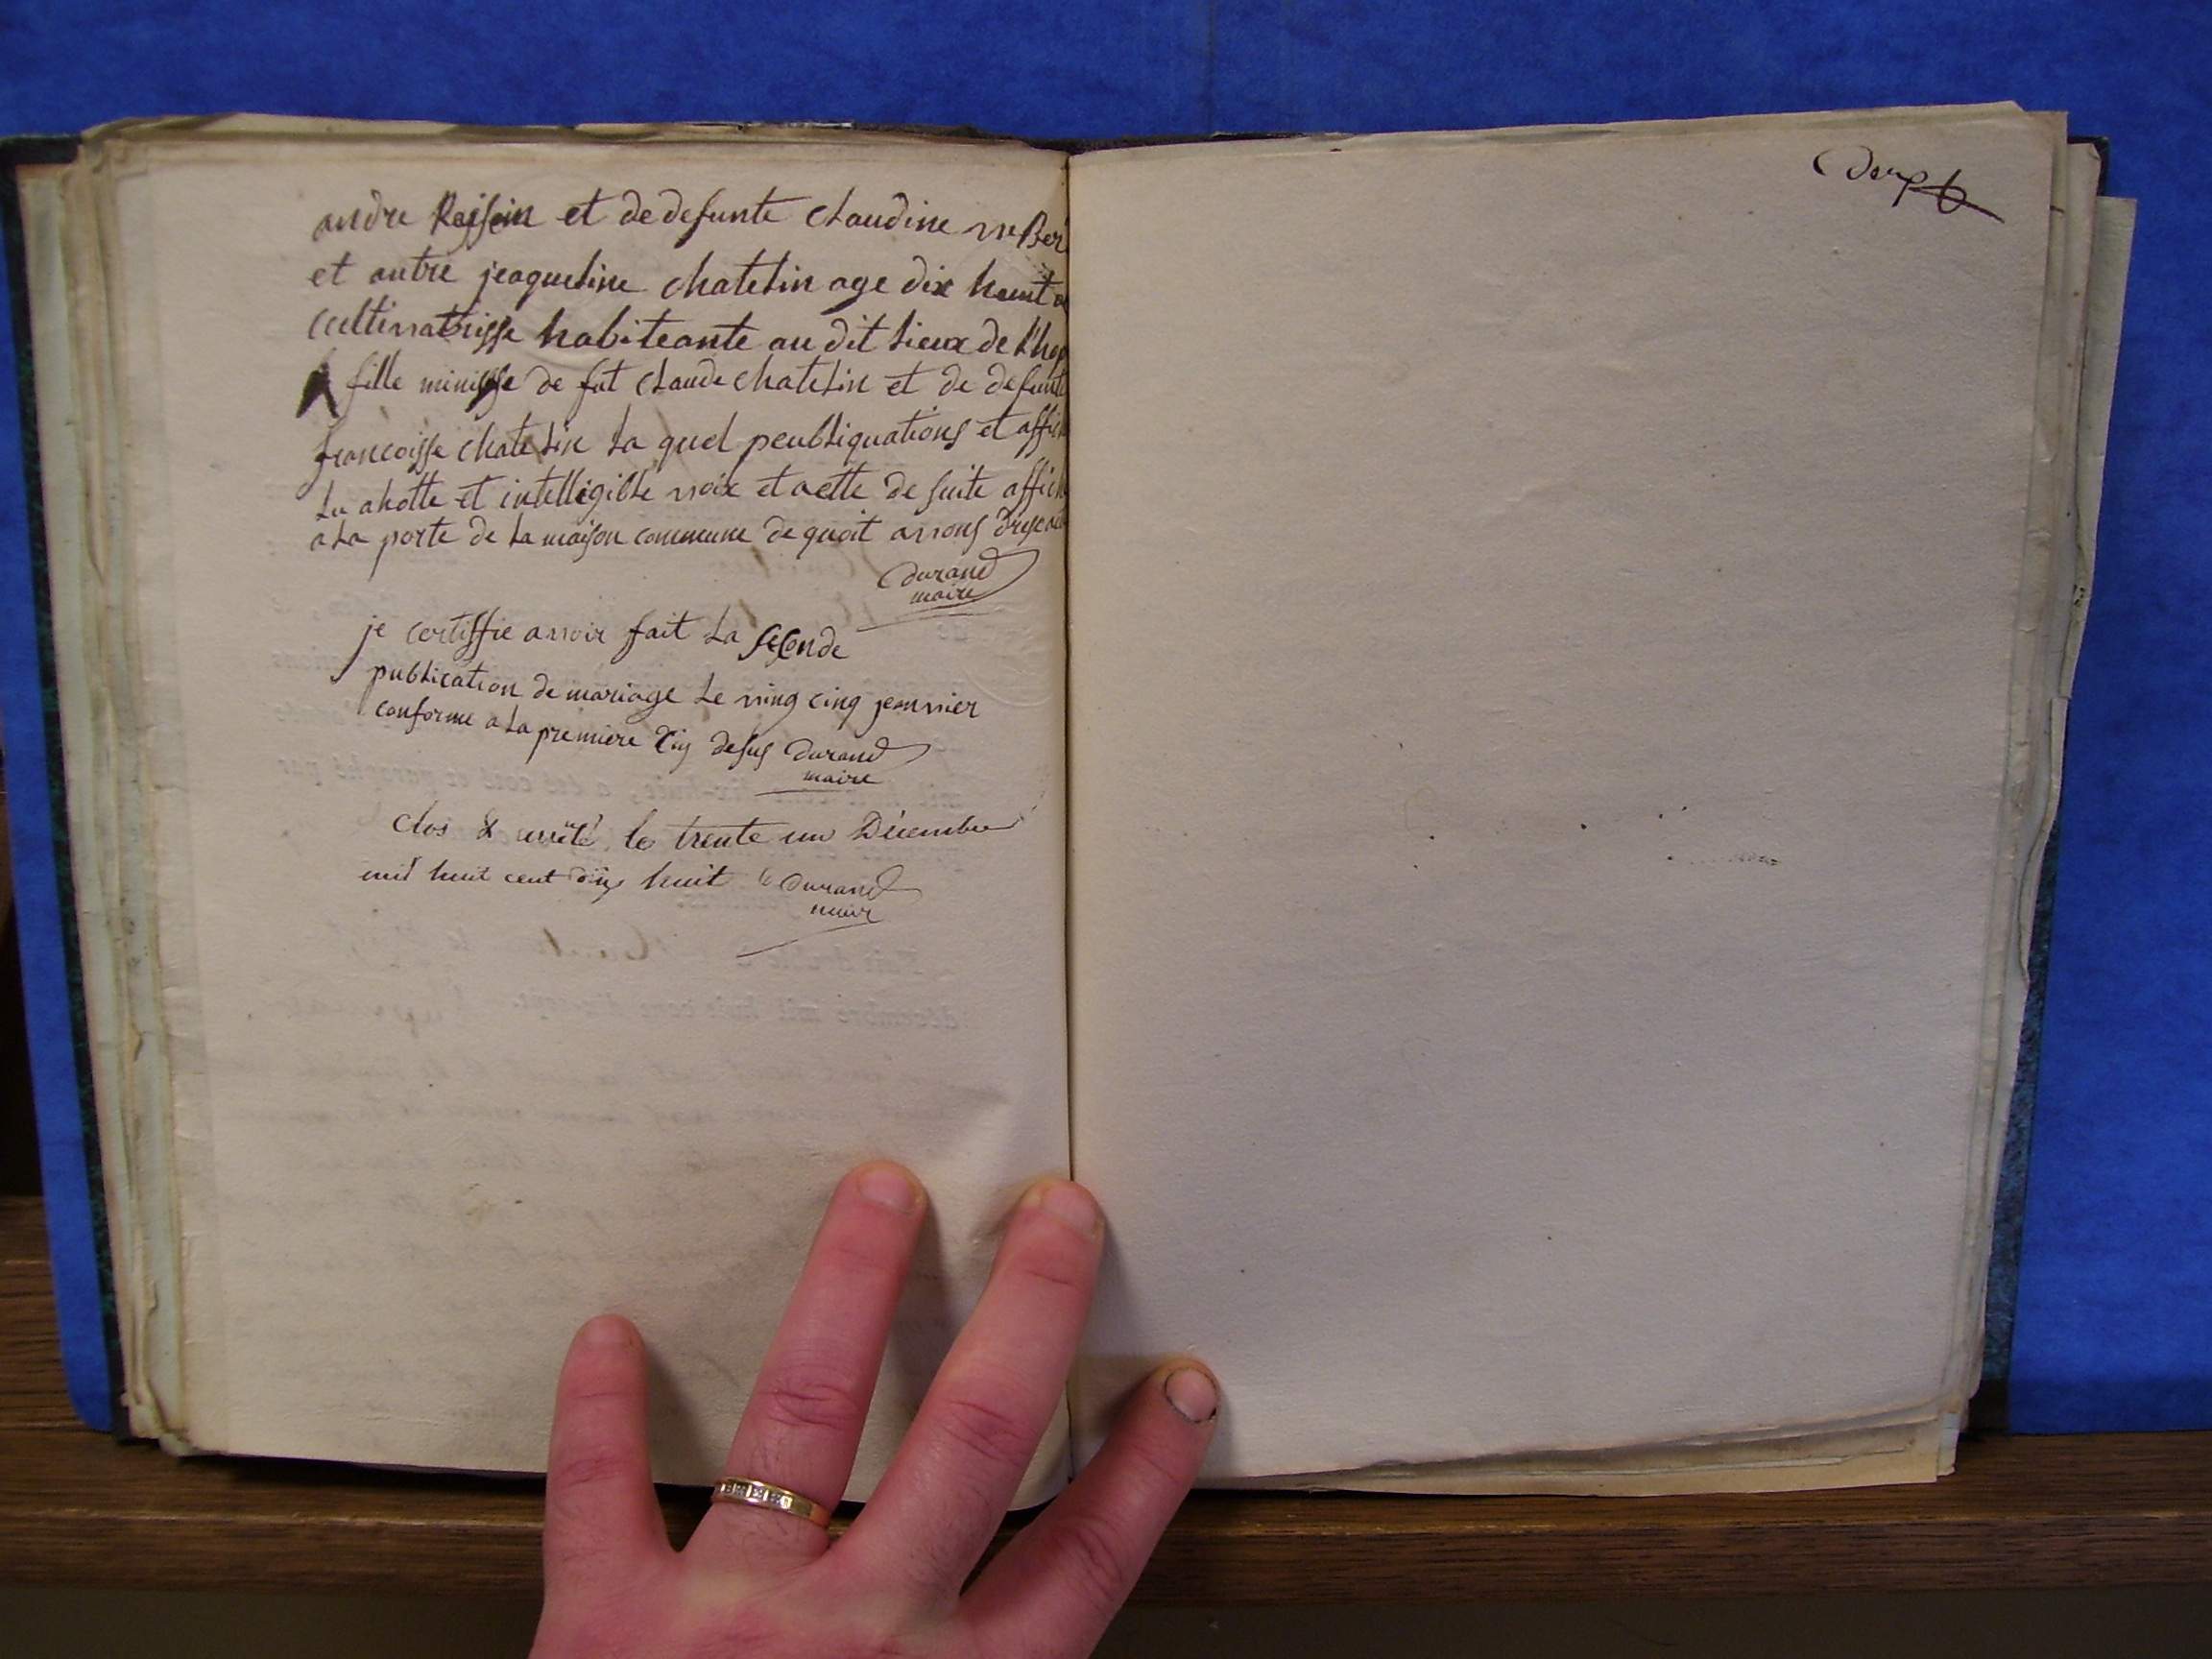 andre Rajsein et de defunte claudine
et autre jeaqueline chatelin age dix heuit
habiteante au dit lieux de l'hop
fille de fut claude chatelin et de defunte
francoisse chatelin la quel peubliquations et affich
lu ahotte et intelligible voix et acette de suite affich
a la porte de la maison commeune de quoit avons
durand
maire
je certiffie avoir fait la seconde
publication de mariage le ving cinq jeanvier
conforme a la premiere desus durand
maire
clos & arrêté le trente un Décembre
mil huit cent dix huit durand
maire